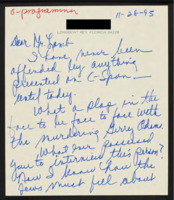 c-programmer
11-28-93
Dear Mr. Lamb
I have never been
offended by anything
presented on C-Span —
until today.
What a slap in the
face to be face to face with
the murdering Gerry Adams
What ever possessed
you to interview this person?
Now I know how the
Jews must feel about